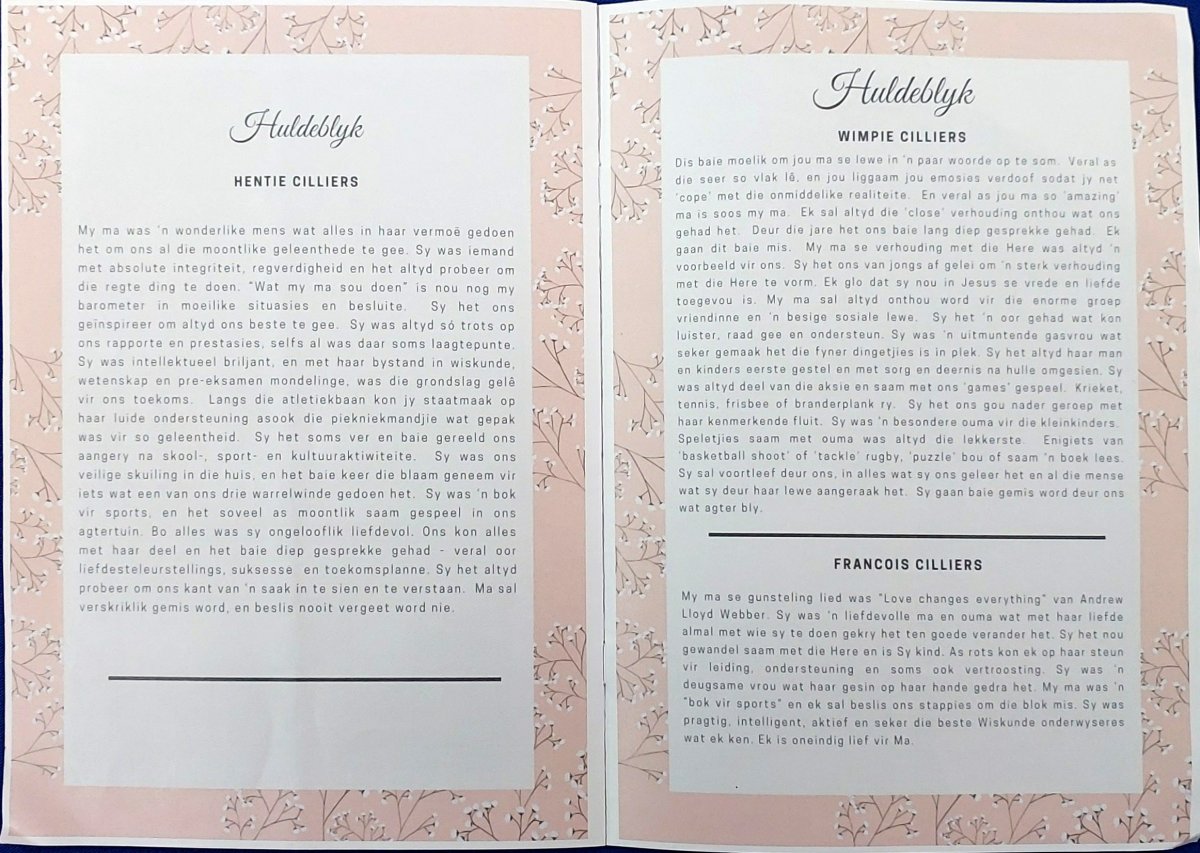 Huldeblyk
HENTIE CILLIERS
My ma was 'n wonderlike mens wat alles in haar vermoë gedoen
het om ons al die moontlike geleenthede te gee. Sy was iemand
met absolute integriteit, regverdigheid en het altyd probeer om
die regte ding te doen. "Wat my ma sou doen" is nou nog my
barometer in moeilike situasies en besluite. Sy het ons
geïnspireer om altyd ons beste te gee. Sy was altyd só trots op
ons rapporte en prestasies, selfs al was daar soms laagtepunte.
Sy was intellektueel briljant, en met haar bystand in wiskunde,
wetenskap en pre-eksamen mondelinge, was die grondslag gelê
vir ons toekoms. Langs die atletiekbaan kon jy staatmaak op
haar luide ondersteuning asook die piekniekmandjie wat gepak
was vir so geleentheid. Sy het soms ver en baie gereeld ons
aangery na skool-, sport- en kultuuraktiwiteite. Sy was ons
veilige skuiling in die huis, en het baie keer die blaam geneem vir
iets wat een van ons drie warrelwinde gedoen het. Sy was 'n bok
vir sports, en het soveel as moontlik saam gespeel in ons
agtertuin. Bo alles was sy ongelooflik liefdevol. Ons kon alles
met haar deel en het baie diep gesprekke gehad - veral oor
liefdesteleurstellings, suksesse en toekomsplanne. Sy het altyd
probeer om ons kant van 'n saak in te sien en te verstaan. Ma sal
verskriklik gemis word, en beslis nooit vergeet word nie.
Huldeblyk
WIMPIE CILLIERS
Dis baie moelik om jou ma se lewe in 'n paar woorde op te som. Veral as
die seer so vlak lê, en jou liggaam jou emosies verdoof sodat jy net
'cope' met die onmiddelike realiteite. En veral as jou ma so 'amazing'
ma is soos my ma. Ek sal altyd die 'close' verhouding onthou wat ons
gehad het. Deur die jare het ons baie lang diep gesprekke gehad. Ek
gaan dit baie mis. My ma se verhouding met die Here was altyd 'n
voorbeeld vir ons. Sy het ons van jongs af gelei om 'n sterk verhouding
met die Here te vorm. Ek glo dat sy nou in Jesus se vrede en liefde
toegevou is. My ma sal altyd onthou word vir die enorme groep
vriendinne en 'n besige sosiale lewe. Sy het 'n oor gehad wat kon
luister, raad gee en ondersteun. Sy was 'n uitmuntende gasvrou wat
seker gemaak het die fyner dingetjies is in plek. Sy het altyd haar man
en kinders eerste gestel en met sorg en deernis na hulle omgesien. Sy
was altyd deel van die aksie en saam met ons 'games' gespeel. Krieket,
tennis, frisbee of branderplank ry. Sy het ons gou nader geroep met
haar kenmerkende fluit. Sy was 'n besondere ouma vir die kleinkinders.
Speletjies saam met ouma was altyd die lekkerste. Enigiets van
'basketball shoot' of 'tackle' rugby, 'puzzle' bou of saam 'n boek lees.
Sy sal voortleef deur ons, in alles wat sy ons geleer het en al die mense
wat sy deur haar lewe aangeraak het. Sy gaan baie gemis word deur ons
wat agter bly.
FRANCOIS CILLIERS
My ma se gunsteling lied was "Love changes everything" van Andrew
Lloyd Webber. Sy was 'n liefdevolle ma en ouma wat met haar liefde
almal met wie sy te doen gekry het ten goede verander het. Sy het nou
gewandel saam met die Here en is Sy kind. As rots kon ek op haar steun
vir leiding, ondersteuning en soms ook vertroosting. Sy was 'n
deugsame vrou wat haar gesin op haar hande gedra het. My ma was 'n
"bok vir sports" en ek sal beslis ons stappies om die blok mis. Sy was
pragtig, intelligent, aktief en seker die beste Wiskunde onderwyseres
wat ek ken. Ek is oneindig lief vir Ma.